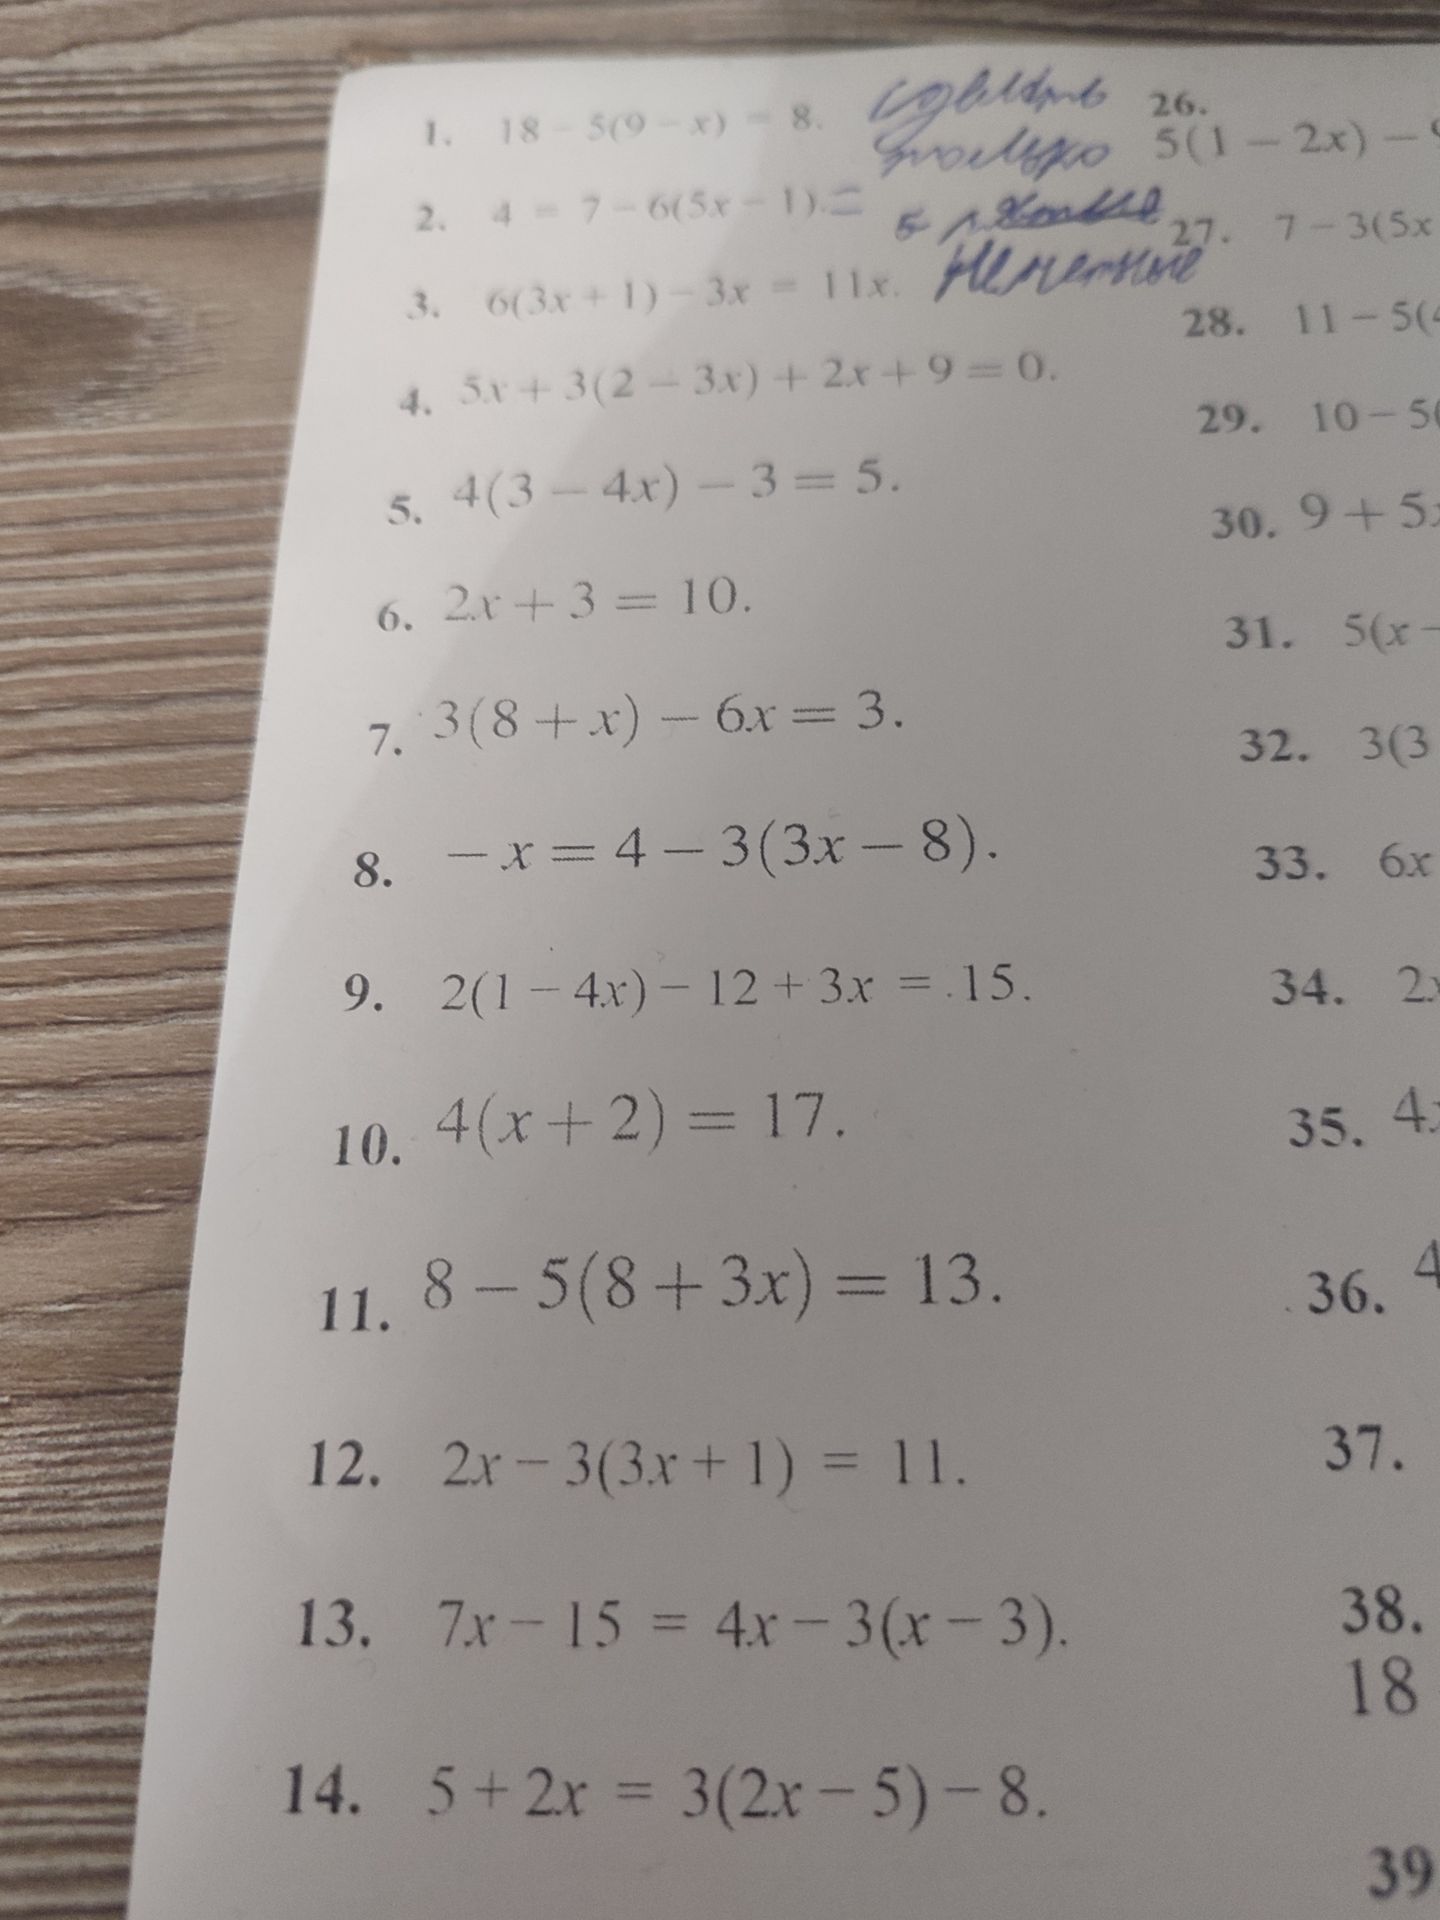 1. 18 − 5(9 − x) = 8.
2. 4 = 7 − 6(5x − 1). =
3. 6(3x + 1) − 3x = 11x.
4. 5x + 3(2 − 3x) + 2x + 9 = 0.
5. 4(3 − 4x) − 3 = 5.
6. 2x + 3 = 10.
7. 3(8 + x) − 6x = 3.
8. − x = 4 − 3(3x − 8).
9. 2(1 − 4x) − 12 + 3x = 15.
10. 4(x + 2) = 17.
11. 8 − 5(8 + 3x) = 13.
12. 2x − 3(3x + 1) = 11.
13. 7x − 15 = 4x − 3(x − 3).
14. 5 + 2x = 3(2x − 5) − 8.
сделать
только
нечетные
26.
5(1 − 2x) −
27. 7 − 3(5x
28. 11 − 5(
29. 10 − 5(
30. 9 + 5x
31. 5(x −
32. 3(3
33. 6x
34. 2x
35. 4x
36. 4
37.
38.
18
39